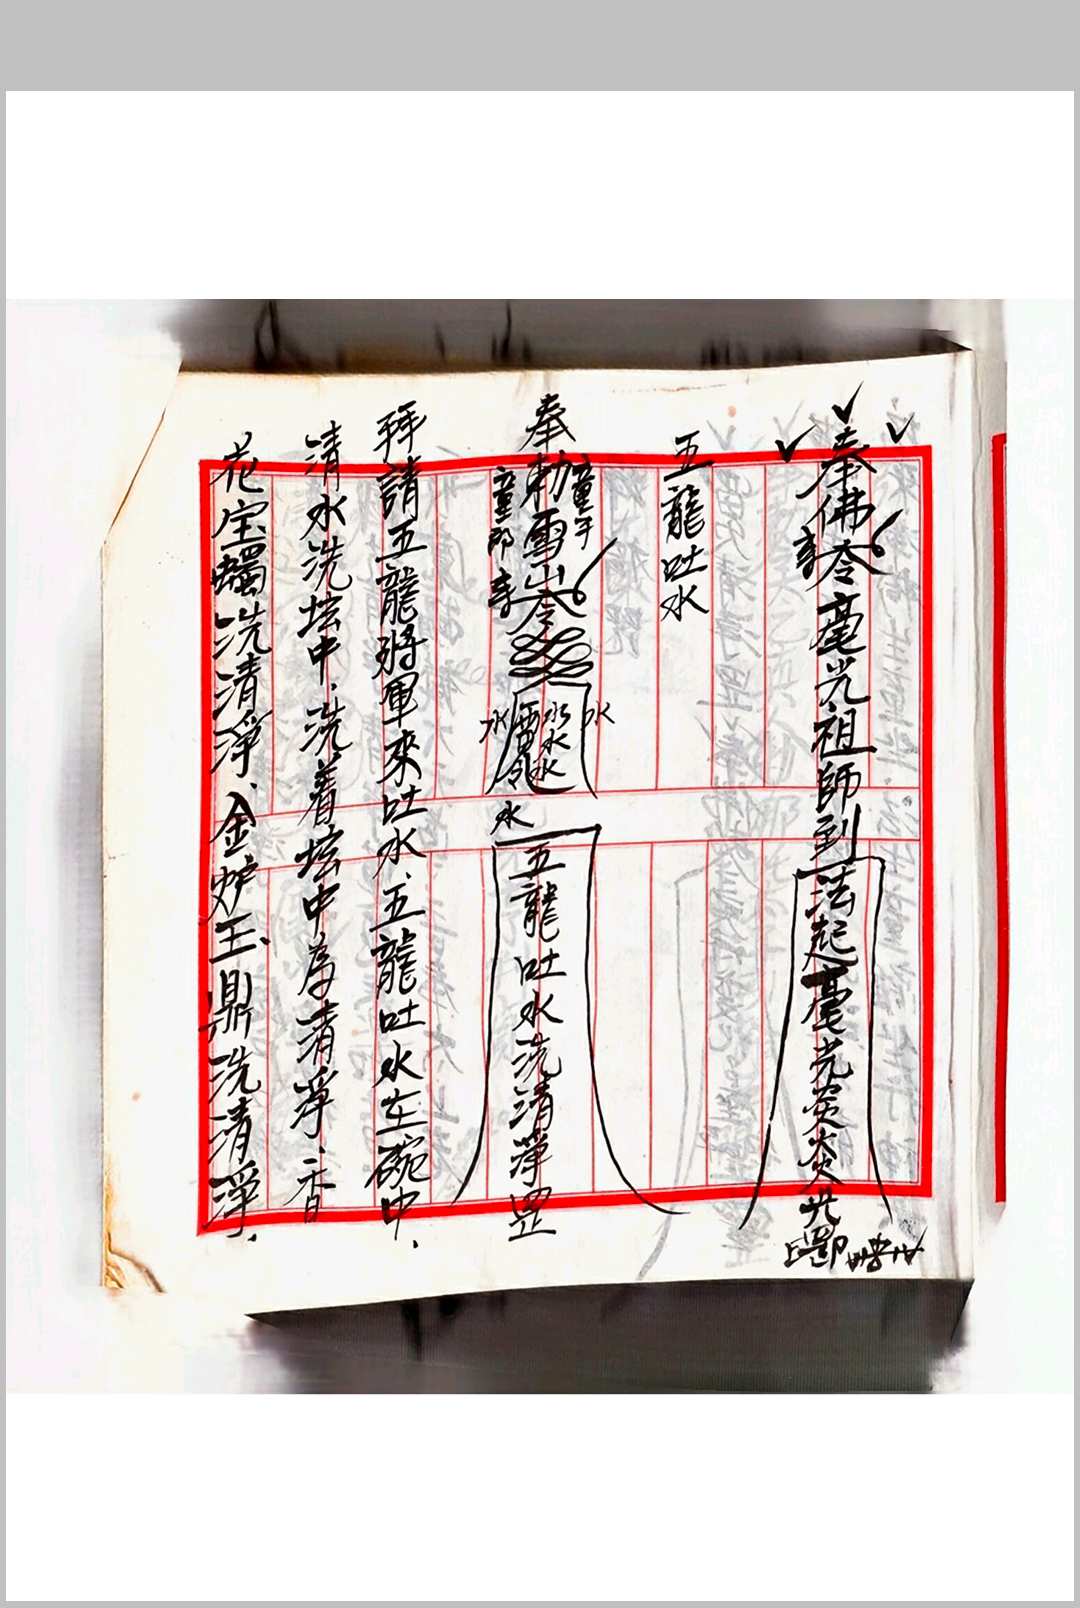 奉佛令毫光祖師到法起毫光炎炎光罡
五龍吐水
奉勅雪山令
童子
童郎
水
水
水
水
水
水
五龍吐水洗清淨罡
拜請五龍將軍來吐水、五龍吐水在碗中、
清水洗坛中、洗着坛中為清淨、香
花宝蠋洗清淨、金炉玉鼎洗清淨、